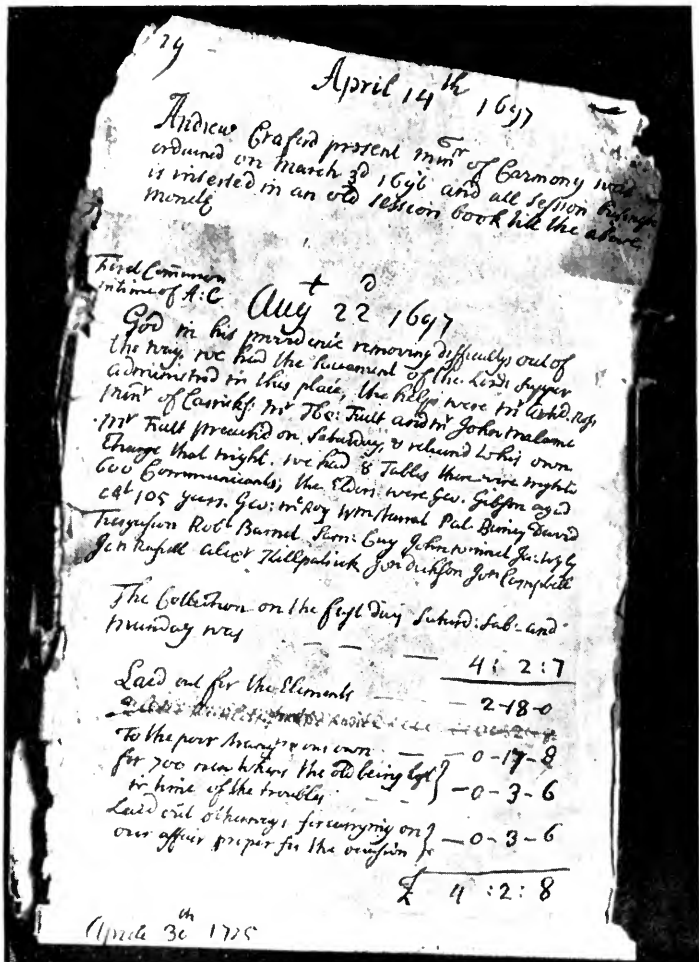 29 -
April 14th 1697
Andrew Craford present minr of Carmony was
ordained on march 3d 1696 and all session business
is inserted in an old session book till the above
moneth
Communion
in time of A: C
Aug 22 1697
God in his providence removing difficultys out of
the way, we had the Sacrament of the Lords Supper
administred in this place, the helps were mr
minr of Carrickf: mr Tho: Futt and mr John malame
mr Futt preached on Saturday, & returnd to his own
Charge that night. we had 8 Tables there were nigh to
600 Communicants, the Elders were Geo. Gibson aged
105 years. Geo: mcRoy Wm Pat. Biney David
Fergusson Robt Barnet Sam: Guy John Ja: Wyly
Jon Russell Alexr Killpatrick Jon dickson Jon Campbell
The Collection on the fast day Saturd: Sab: and
munday was — — — 4 : 2 : 7
Laid out for the Elements — — 2-18-0
To the poor many of our own — — 0-17-8
for 700 new tokens the old being lost } — 0-3-6
in time of the troubles
Laid out otherways for carrying on } — 0-3-6
our affair proper for the occasion
£ 4 : 2 : 8
Aprile 30th 1725